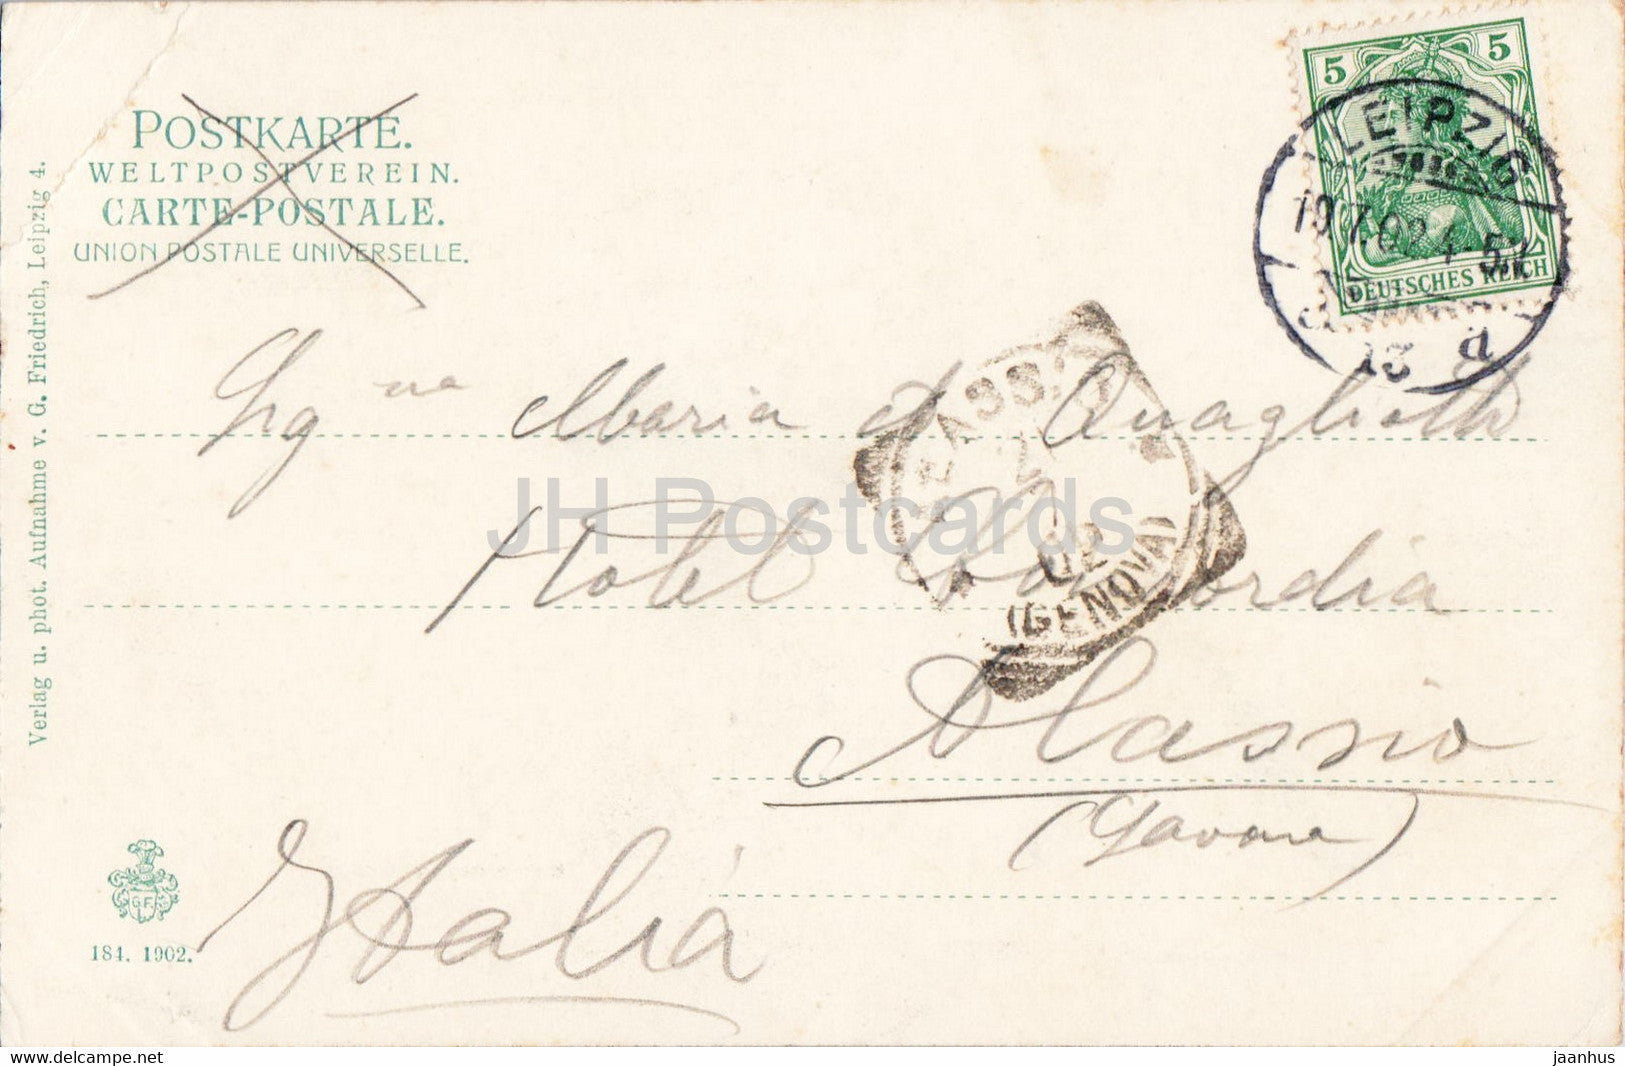 POSTKARTE.
WELTPOSTVEREIN.
CARTE-POSTALE.
UNION POSTALE UNIVERSELLE.
Verlag u. phot. Aufnahme v. G. Friedrich, Leipzig 4.
5 5
DEUTSCHES REICH
LEIPZIG
19.7.02. 4-5 N
13 d
ALASSIO
02
(GENOVA)
Sig na Maria Quagliotti
Hotel Concordia
Alassio
(Savona)
Italia
G.F.
184. 1902.
JH Postcards
delcampe.net
jaanhus